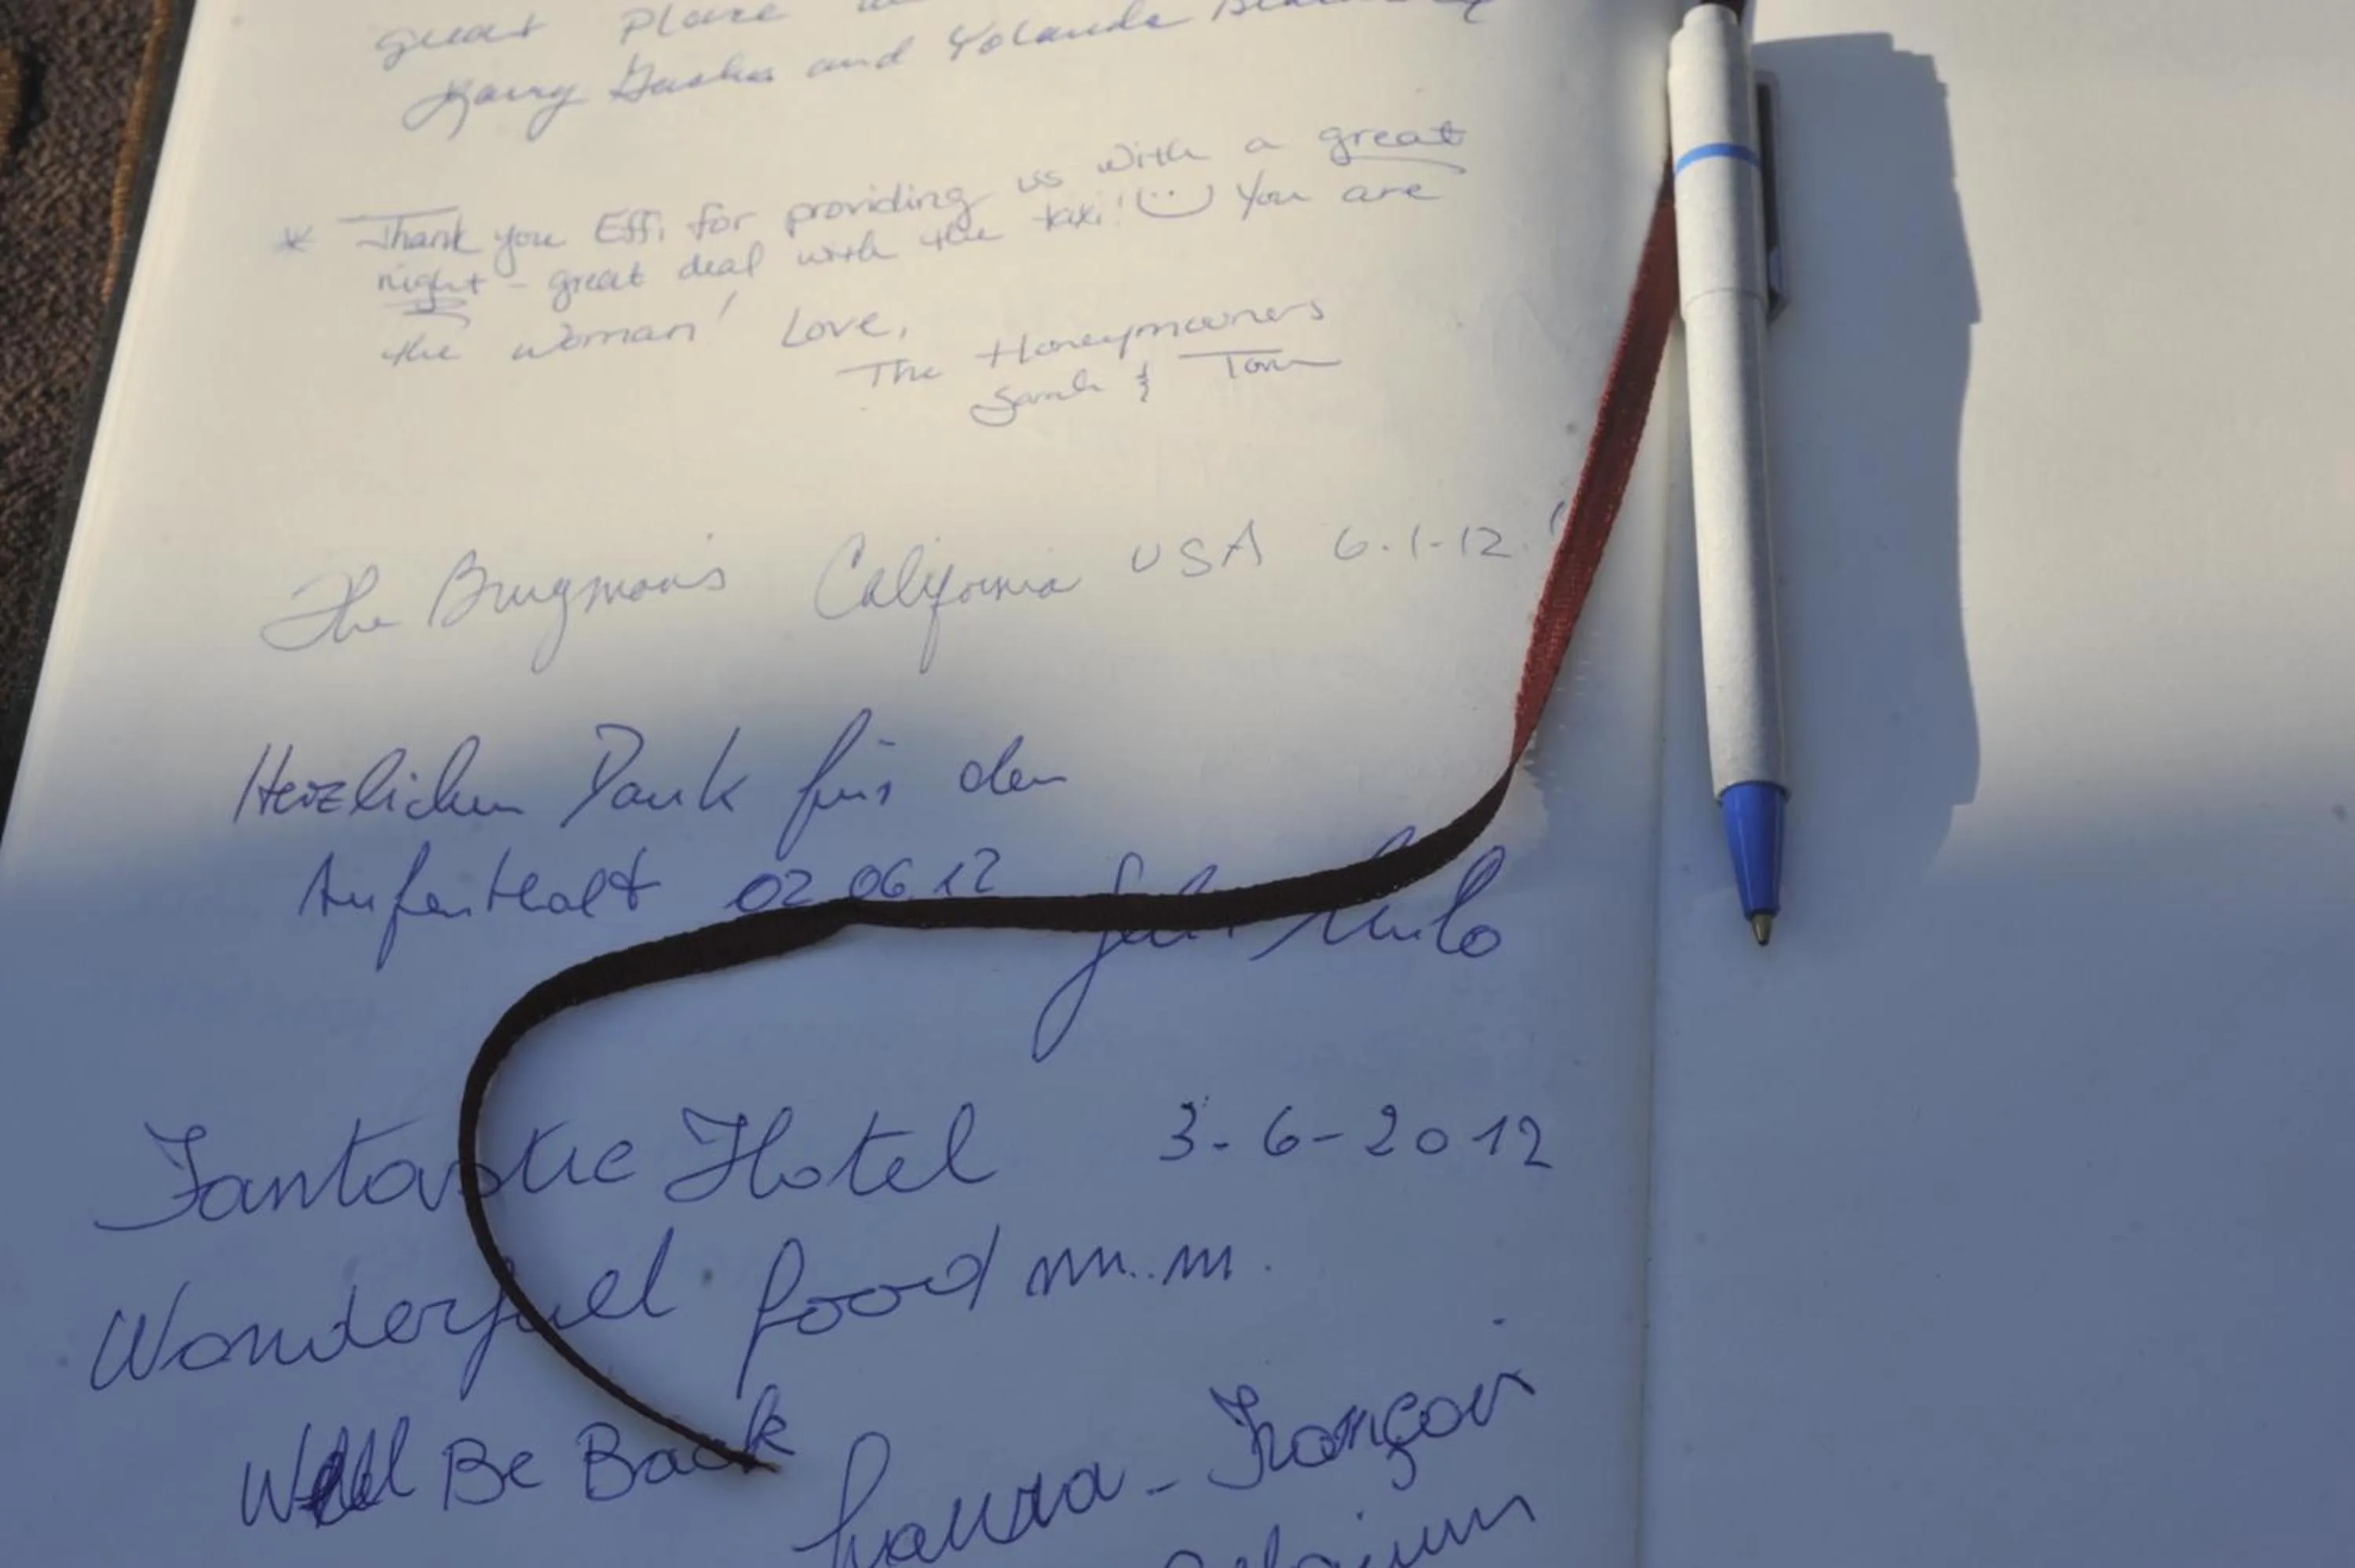 great place
and Yolande
* Thank you Effi for providing us with a great
night - great deal with the taxi! You are
the woman! Love,
The Honeymooners
Sarah & Tom
The Brugman's California USA 6.1-12
Herzlichen Dank für den
Aufenthalt 02.06.12
Fantastic Hotel 3-6-2012
Wonderfuel food mm..m.
Will Be Back
Laura - François
Belgium